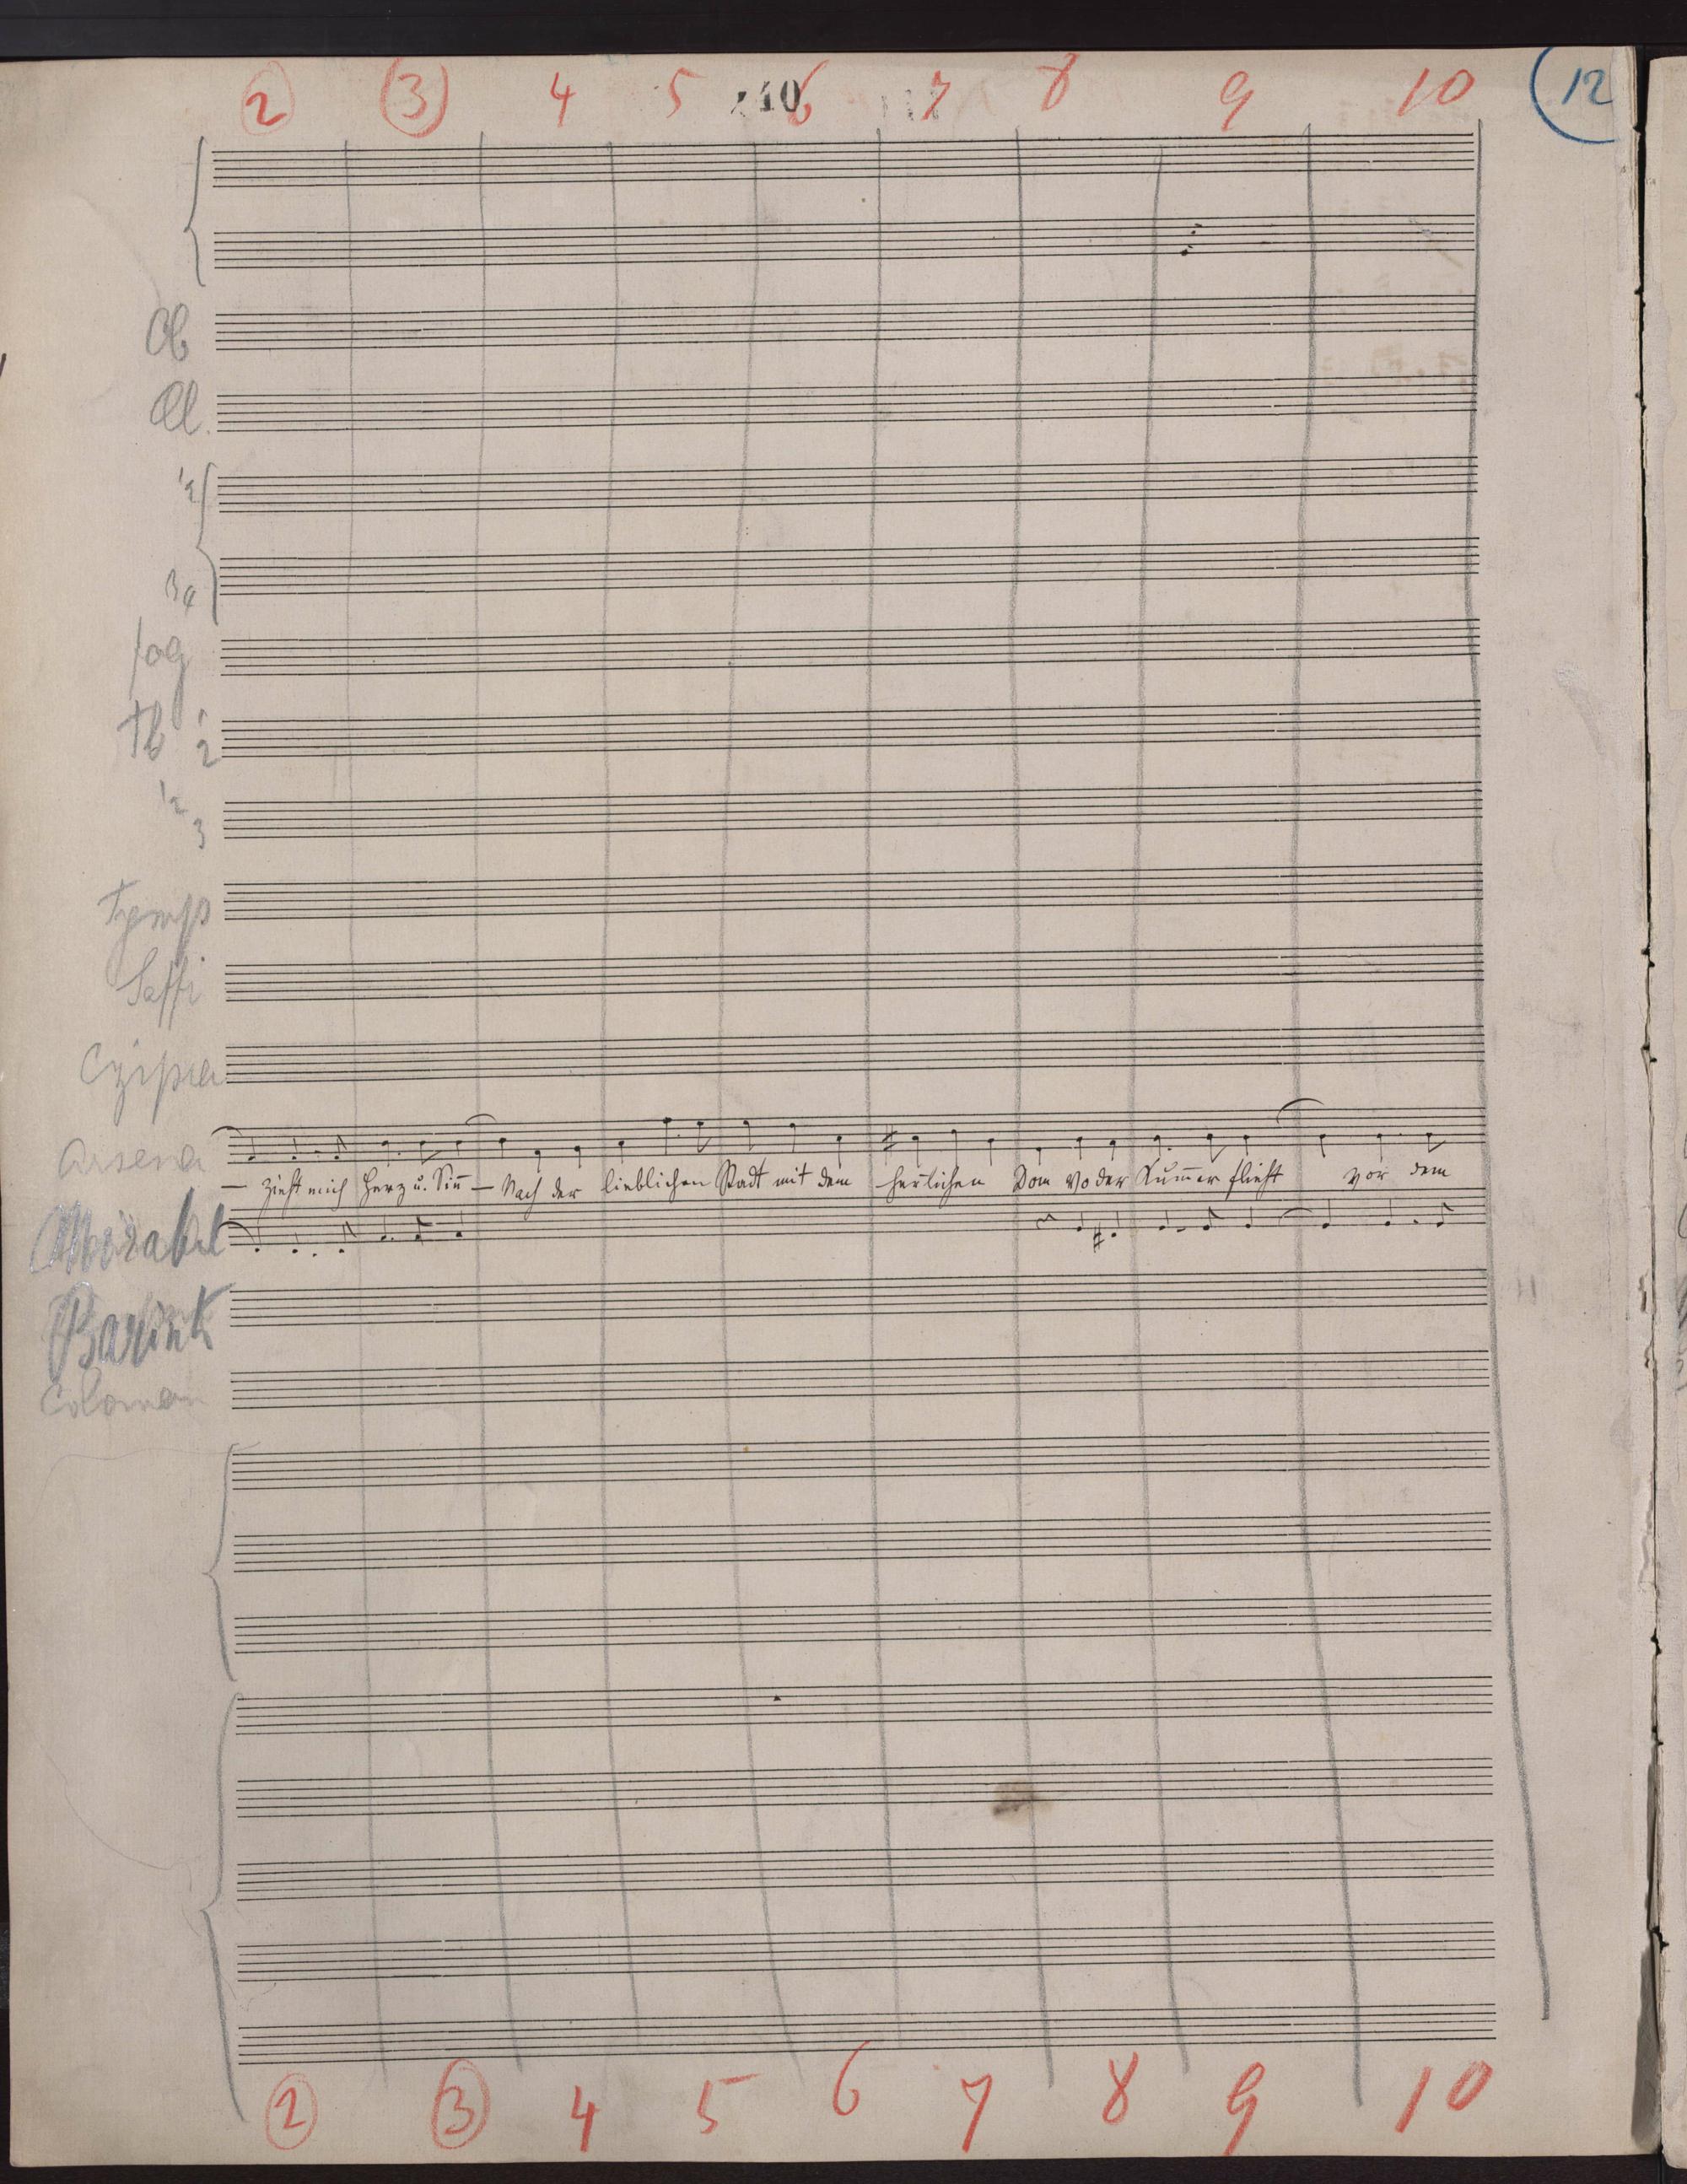 2 3 4 5 6 7 8 9 10 12
10
Ob
Cl.
1 2
3 4
fag
Tb 1 2
1 2 3
Tymp
Saffi
Czipra
Arsena
— zieht mich Herz u. Sin̄ — Nach der lieblichen Stadt mit dem herrlichen Dom wo der Kum̄er flieht vor dem
Mirabel
Barink
Coloman
2 3 4 5 6 7 8 9 10